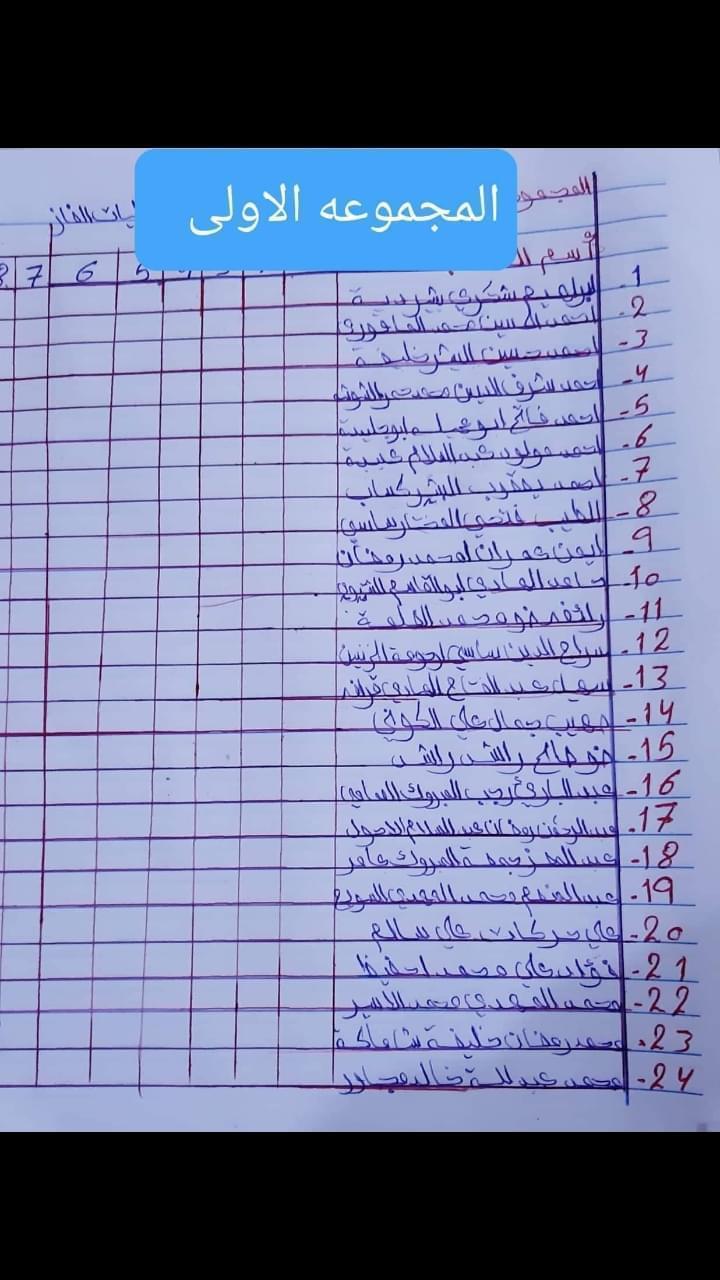 المجموعه الاولى
المجمو
يات الغاز
أسم ال
5 6 7 8
1- ابراهيم شكري شردية
2- احمد الحسين محمد الفاخوري
3- احمد حسين البشر خليفة
4- احمد شرف الدين محمد
5- احمد فاتح ابوعجيلة ابوحليمة
6- احمد مولود عبد السلام عبية
7- احمد يعقوب البشير كساب
8- الطيب فتحي المختار ساسي
9- ايمن عمران امحمد رمضان
10- حامد الهادي ابوالقاسم
11- رائف ضو محمد القلعة
12- سراج الدين ساسي اجمعة الزنين
13- سهيل عبد الفتاح الهادي
14- صهيب جمال علي الكوني
15- ضو صالح راشد راشد
16- عبد الباري رجب المبروك الساعدي
17- عبد الرحمن رمضان عبد السلام الاحول
18- عبد المعز جمعة المبروك عامر
19- عبد المنعم محمد المهدي
20- علي بركات علي سالم
21- فؤاد علي محمد احفيظ
22- محمد المهدي محمد الأسير
23- محمد رمضان خليفة
24- محمد عبد لله خالد مجاور